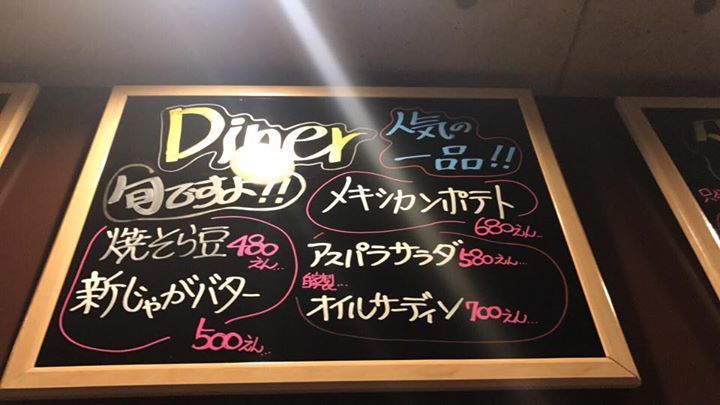 Diner
人気の
一品!!
旬ですよ!!
焼そら豆 480えん…
新じゃがバター
500えん…
メキシカンポテト
680えん…
アスパラサラダ 580えん…
自家製…
オイルサーディン 700えん…